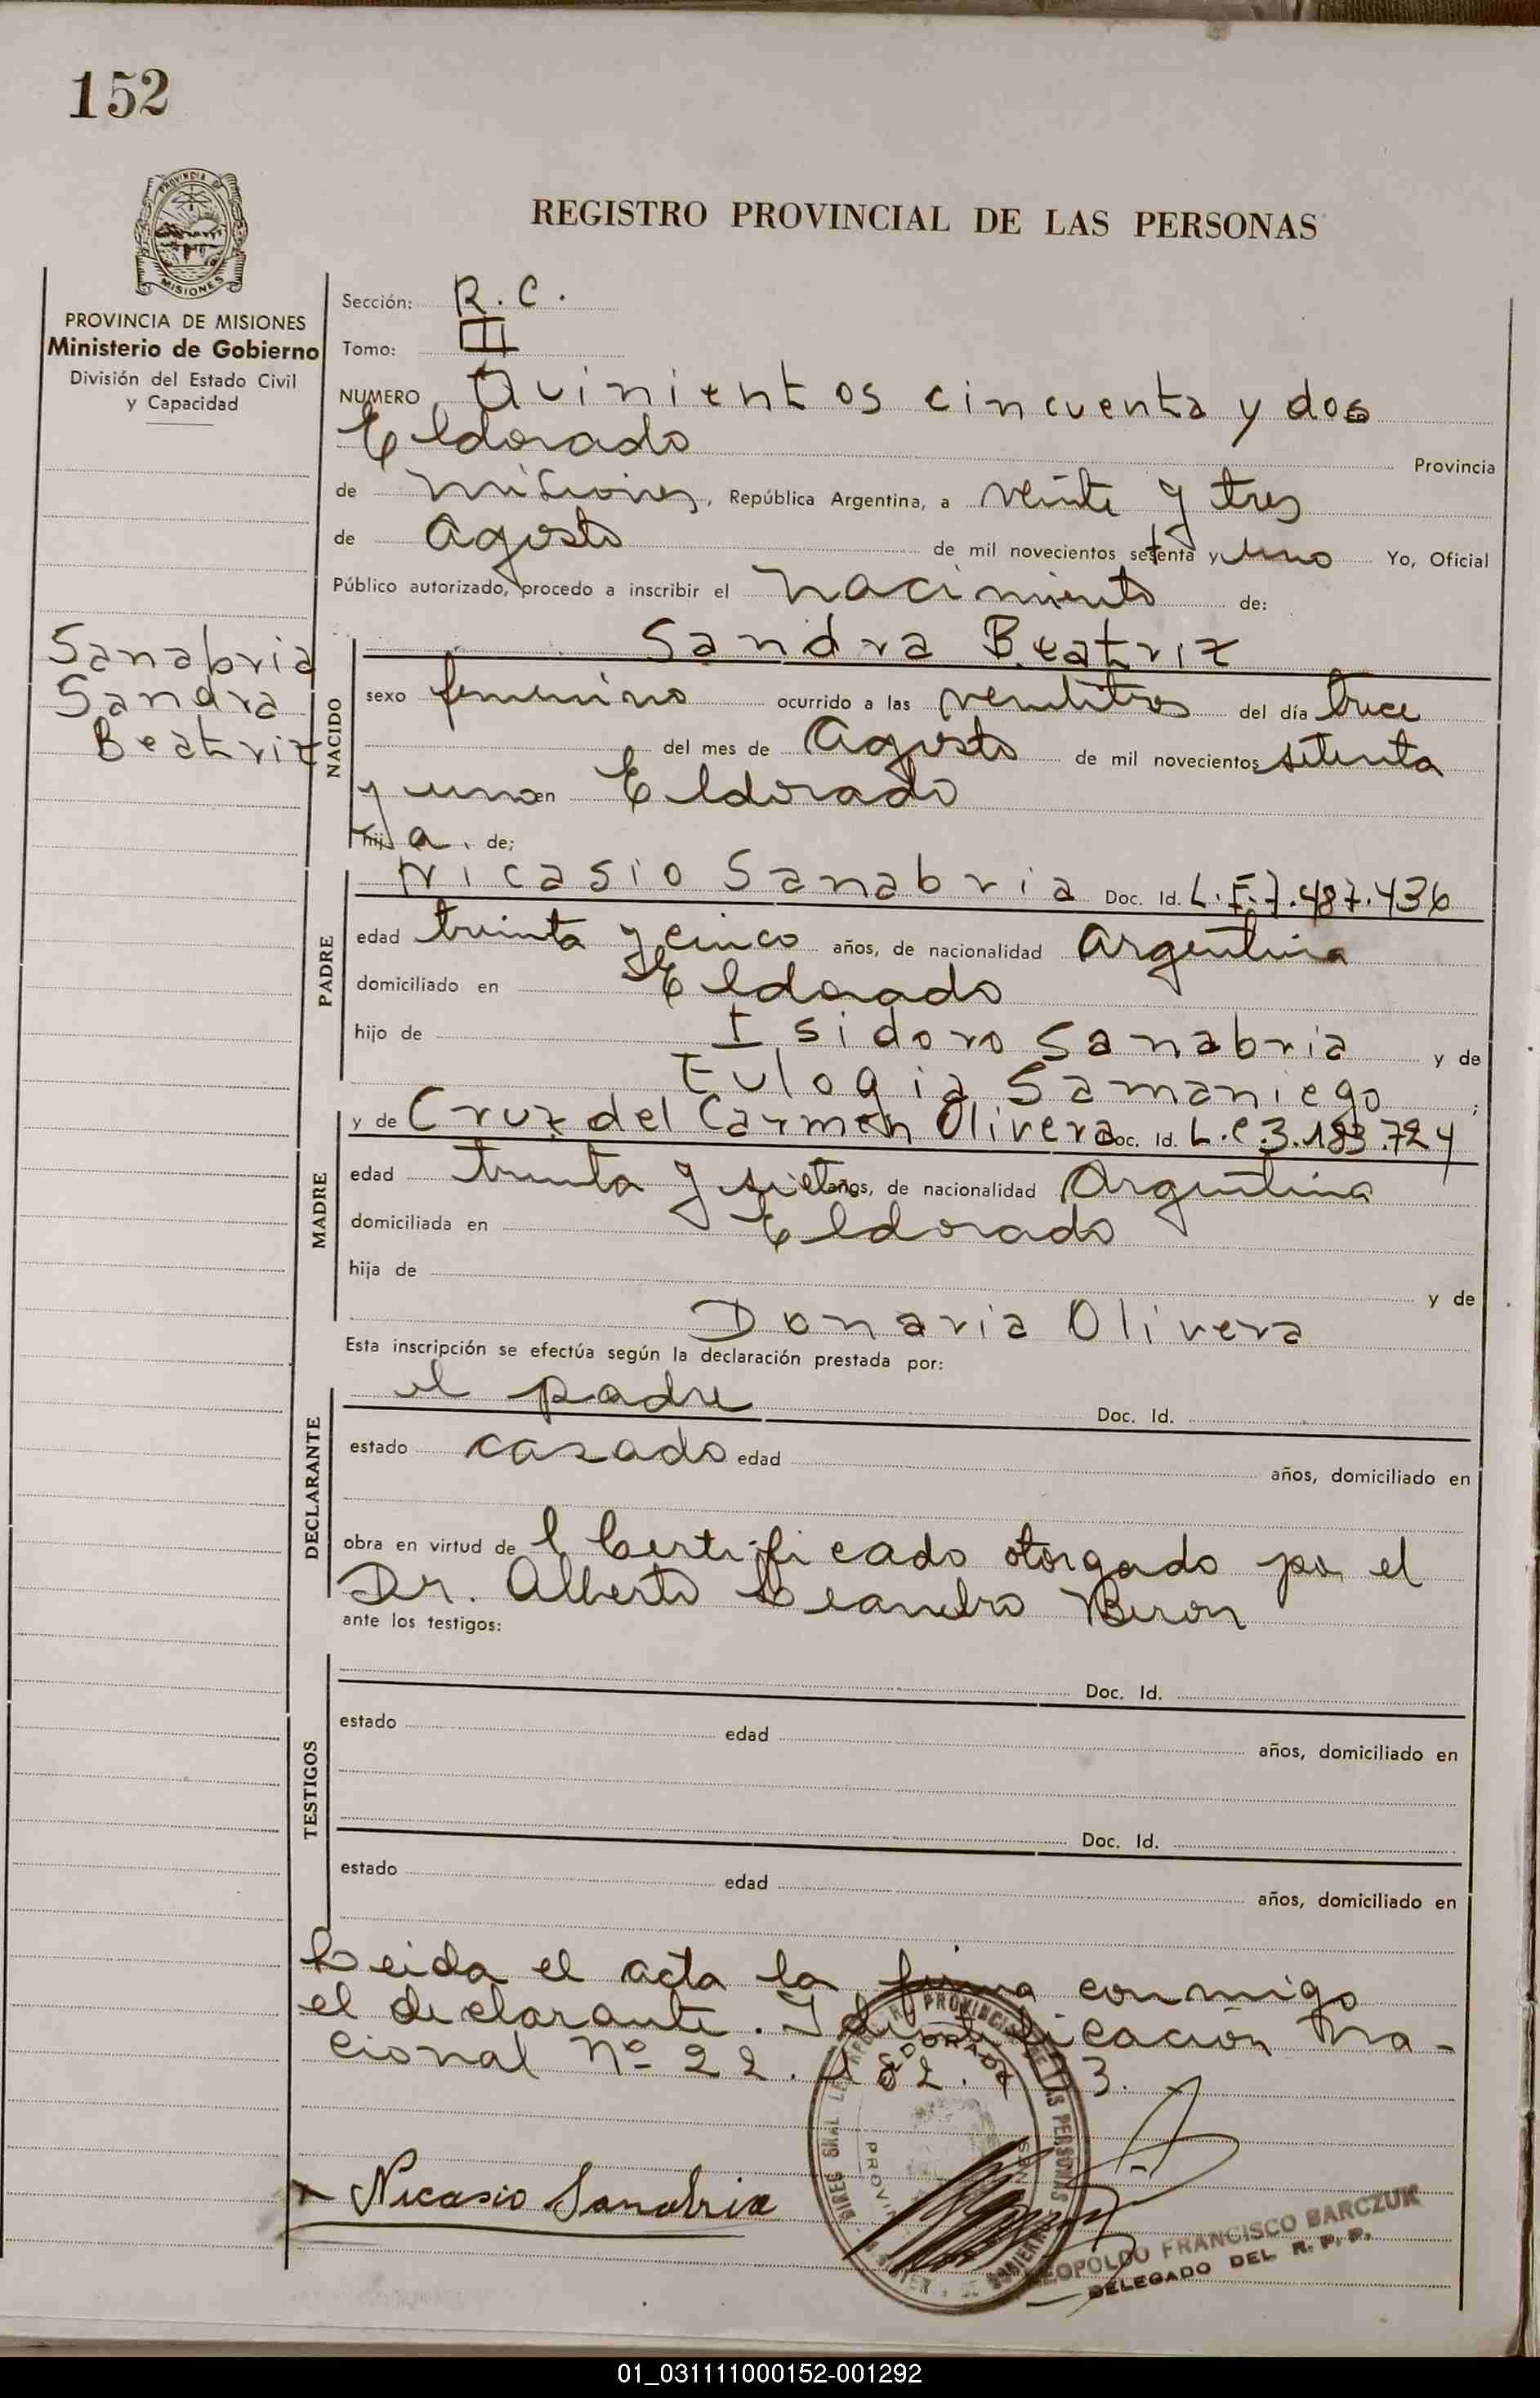 152
PROVINCIA DE
MISIONES
REGISTRO PROVINCIAL DE LAS PERSONAS
PROVINCIA DE MISIONES
Ministerio de Gobierno
División del Estado Civil
y Capacidad
Sanabria
Sandra
Beatriz
Sección: R. C.
Tomo: III
NUMERO Quinientos cincuenta y dos en
Eldorado Provincia
de Misiones, República Argentina, a veinte y tres
de Agosto de mil novecientos setenta y uno Yo, Oficial
Público autorizado, procedo a inscribir el nacimiento de:
NACIDO
Sandra Beatriz
sexo femenino ocurrido a las veintitres del día trece
del mes de Agosto de mil novecientos setenta
y uno en Eldorado
hija de;
PADRE
Nicasio Sanabria Doc. Id. L.E.7.487.436
edad treinta y cinco años, de nacionalidad Argentina
domiciliado en Eldorado
hijo de Isidoro Sanabria y de
Eulogia Samaniego ;
MADRE
y de Cruz del Carmen Olivera Doc. Id. L.C.3.183.724
edad treinta y siete años, de nacionalidad Argentina
domiciliada en Eldorado
hija de y de
Donaria Olivera
Esta inscripción se efectúa según la declaración prestada por:
DECLARANTE
el padre Doc. Id.
estado casado edad años, domiciliado en
obra en virtud de l Certificado otorgado por el
Dr. Alberto Leandro Biron
ante los testigos:
TESTIGOS
Doc. Id.
estado edad
años, domiciliado en
Doc. Id.
estado edad
años, domiciliado en
Leida el acta la firma conmigo
el declarante. Identificación Na-
cional Nº 22.
Nicasio Sanabria
PROVINCIAL DE LAS PERSONAS
ELDORADO
LEOPOLDO FRANCISCO BARCZUK
DELEGADO DEL R. P. P.
01_031111000152-001292